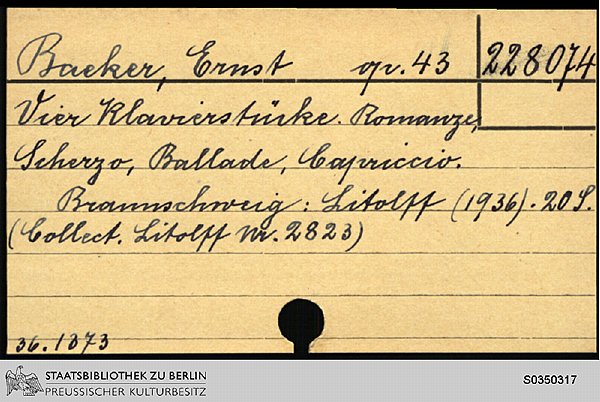 Baeker, Ernst op. 43 228074
Vier Klavierstücke. Romanze,
Scherzo, Ballade, Capriccio.
Braunschweig: Litolff (1936). 20 S.
(Collect. Litolff Nr. 2823)
36.1873
STAATSBIBLIOTHEK ZU BERLIN
PREUSSISCHER KULTURBESITZ
S0350317